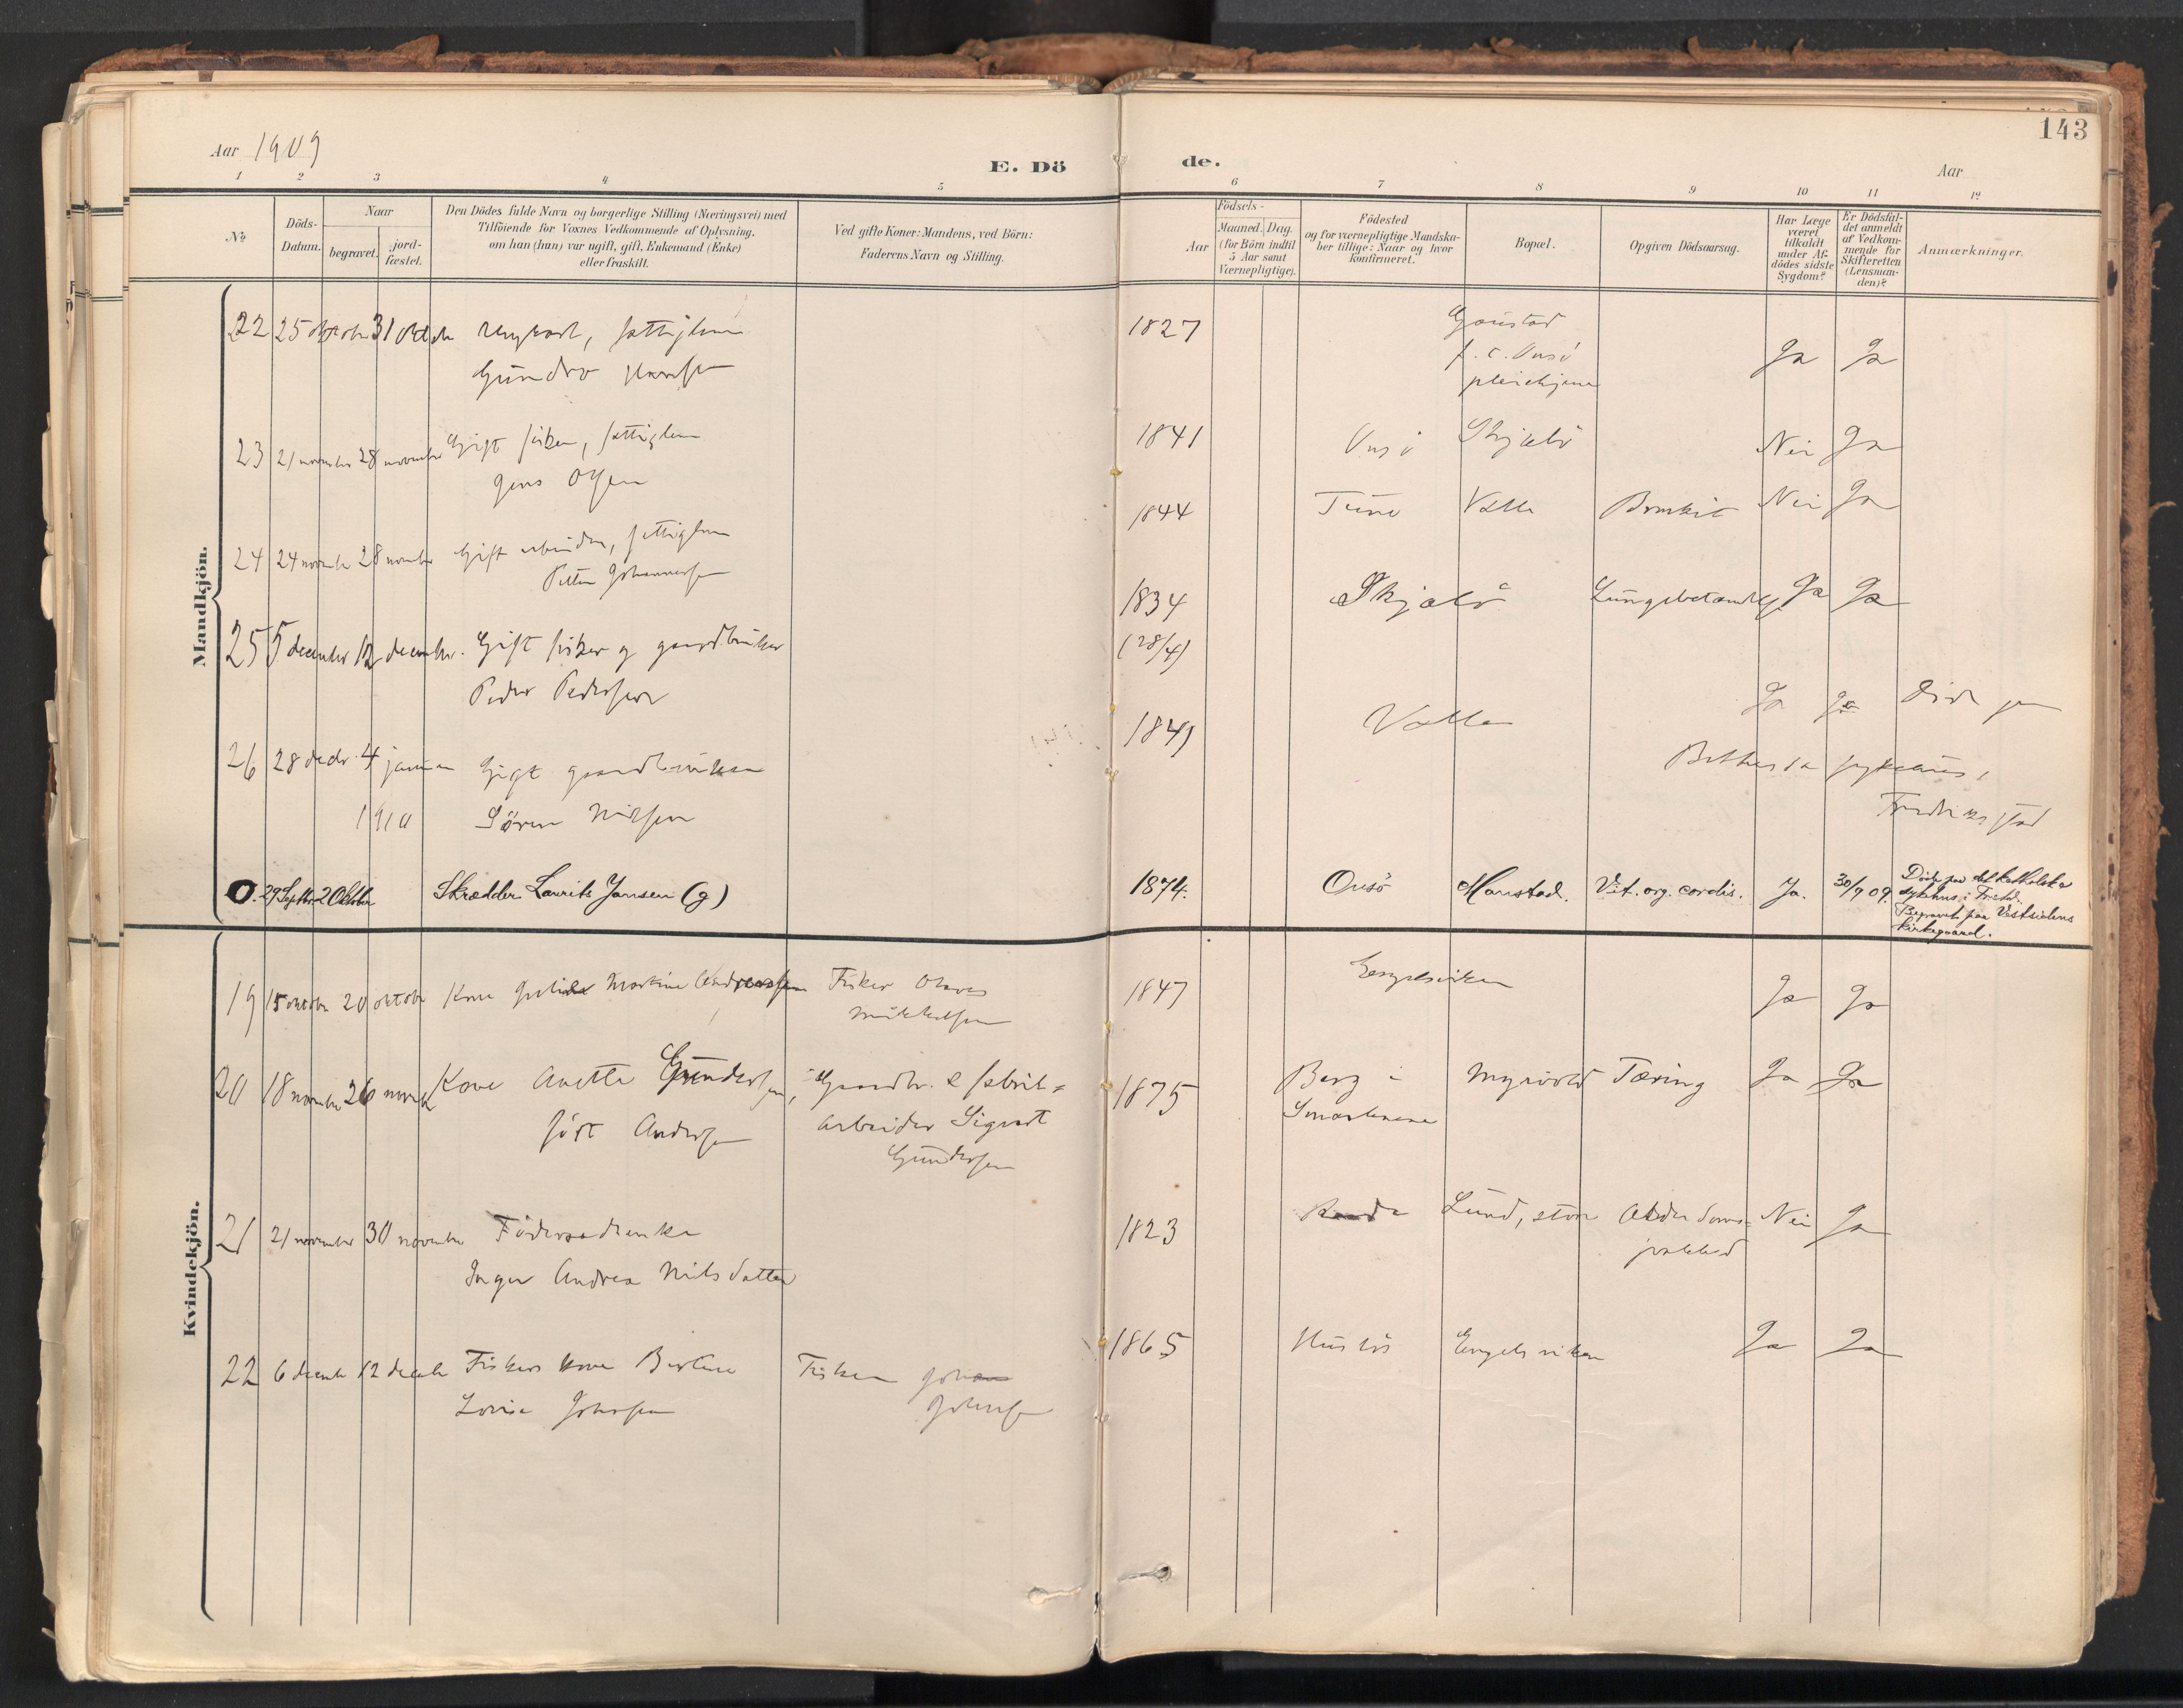 143
Aar 1909
E. Dö de.
Aar
1 2 3 4 5 6 7 8 9 10 11 12
№
Döds-
Datum.
Naar
begravet.
jord-
fæstet.
Den Dödes fulde Navn og borgerlige Stilling (Næringsvei) med
Tilföiende for Voxnes Vedkommende af Oplysning,
om han (hun) var ugift, gift, Enkemand (Enke)
eller fraskilt.
Ved gifte Koner: Mandens, ved Börn:
Faderens Navn og Stilling.
Födsels-
Aar
Maaned. Dag.
(for Börn indtil
5 Aar samt
Værnepligtige).
Födested
og for værnepligtige Mandska-
ber tillige: Naar og hvor
konfirmeret.
Bopæl.
Opgiven Dödsaarsag.
Har Læge
været
tilkaldt
under Af-
dödes sidste
Sygdom?
Er Dödsfal-
det anmeldt
af Vedkom-
mende for
Skifteretten
(Lensman-
den)?
Anmærkninger.
Mandkjön.
22 25 oktober 31 oktober Ungkarl, fattiglem 1827 Gaustad
Gundro Hansen f. c. Onsö Ja Ja
pleiehjem
23 21 november 28 november Gift fisker, fattiglem 1841 Onsö Skjælö Nei Ja
Jens Olsen
24 24 november 28 november Gift arbeider, fattiglem 1844 Tune Valle Bronkit Nei Ja
Petter Johannessen
25 5 december 12 december. Gift fisker og gaardbruker 1834 Skjælö Lungebetændelse Ja Ja
Peder Pedersen (28/4)
26 28 decbr 4 januar Gift gaardbruker 1841 Valle Ja Ja Död paa
1910 Sören Nilsen Bethesda sykehus,
Fredriksstad
0. 29 Septbr. 2 Oktober Skrædder Laurits Jansen (g) 1874. Onsö Manstad. Vit. org. cordis. Ja. 30/9 09. Döde paa det katholske
sykehus i Fr.stad.
Begravet paa Vestsidens
kirkegaard.
Kvindekjön.
19 15 oktober 20 oktober Kone Juliane Martine Andreassen Fisker Olaves 1847 Engelsviken Ja Ja
Mikkelsen
20 18 november 26 novbr Kone Anette Gundersen, Gaardbr. & fabrik= 1875 Berg i Myrvold Tæring Ja Ja
föдt Andersen arbeider Sigvart Smaalenene
Gundersen
21 21 november 30 november Föderaadsenke 1823 Lund, store Alderdoms= Nei Ja
Inger Andrea Nilsdatter svakhed
22 6 decembr 12 decbr Fiskers kone Berthine Fisker Johan 1865 Huslös Engelsviken Ja Ja
Lovise Johnsen Johnsen